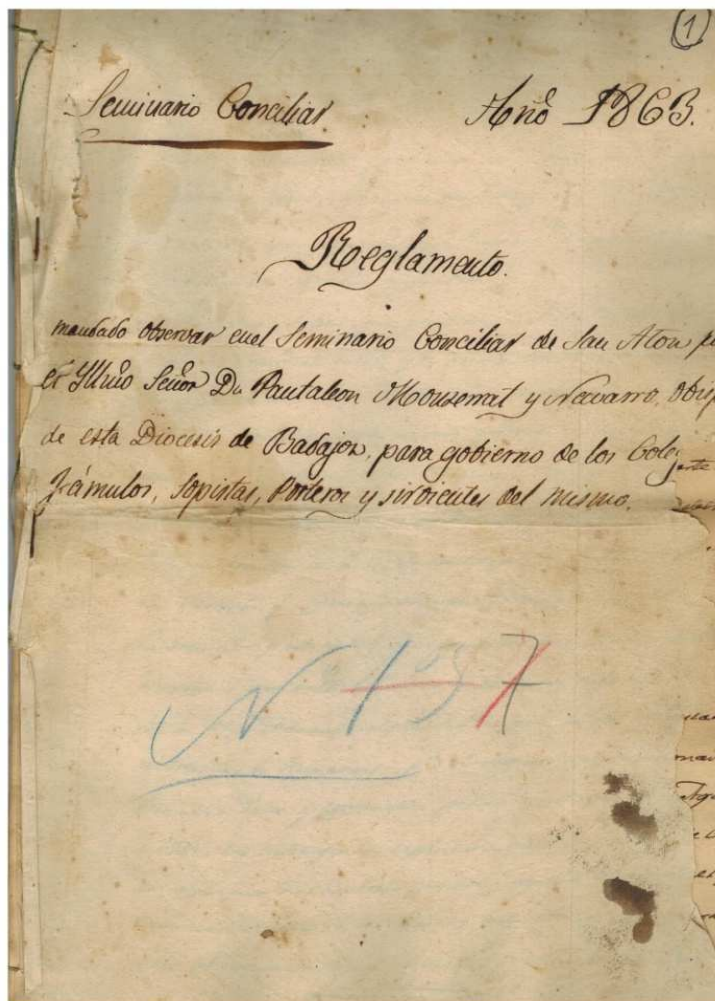 1
Seminario Conciliar Año 1863.
Reglamento.
mandado observar en el Seminario Conciliar de San Aton
el Yllmo Señor Dn Pantaleon Monserrat y Navarro, Obisp
de esta Diocesis de Badajoz, para gobierno de los Coleg
Fámulos, Sopistas, Porteros y sirvientes del mismo.
N